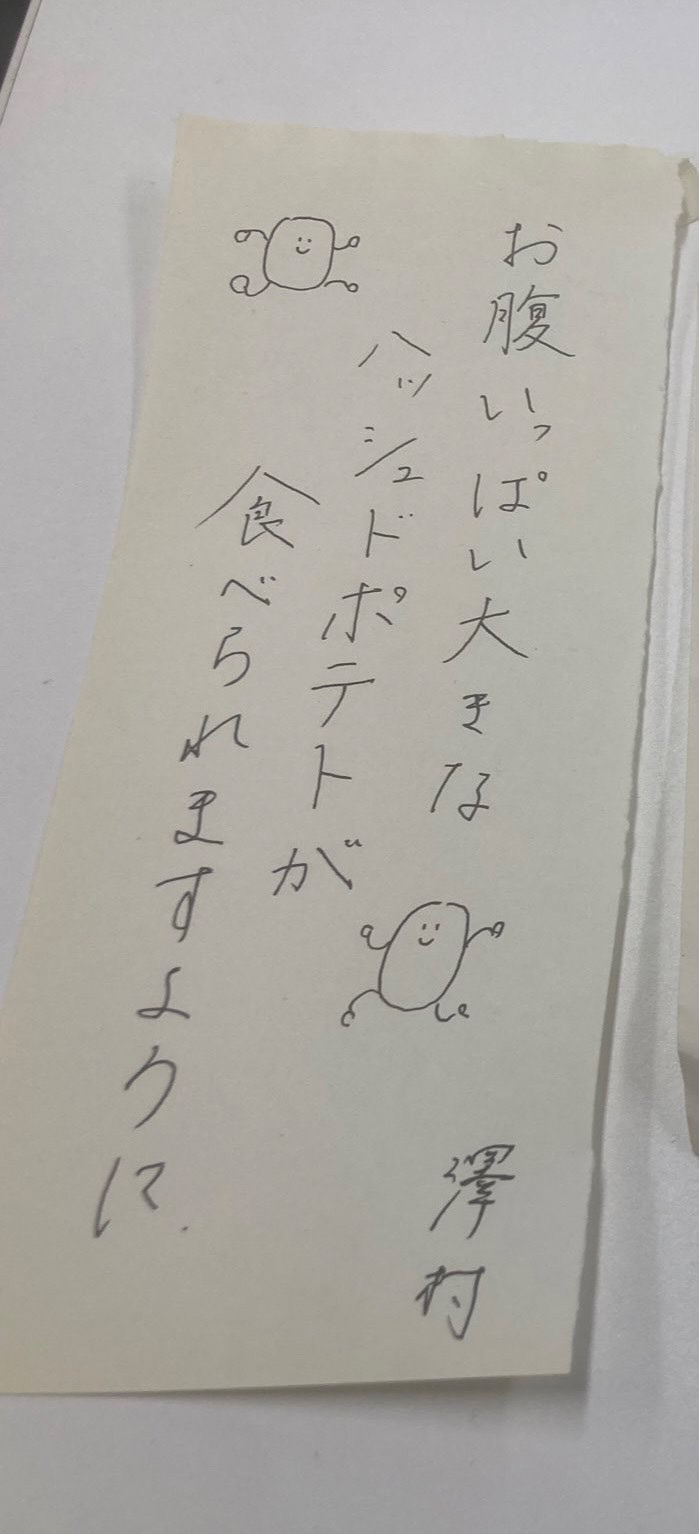 お腹いっぱい大きな
ハッシュドポテトが
食べられますように.
澤村